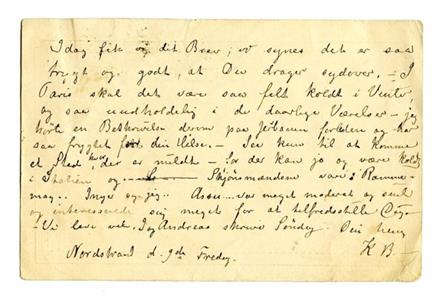 Idag fik vi dit Brev; vi synes det er saa
trygt og godt, at Du drager sydover. – I
Paris skal det være saa felt koldt i Vinter
og saa uudholdelig i de daarlige Værelser – jeg
hørte en derom paa forleden og har
saa frygtet for din Ilse. – See nu til at komme
et Sted hvor der er mildt – for der kan jo og være koldt
i Italien og – Skjønsmændene vare i
mag.. Inger og jeg.. var meget moderat og
og interesserede sig meget for at tilfredsstille
– Vi leve vel. Andreas skreve Søndag. Din heng
Nordstrand d. 9de Fredag. K B–